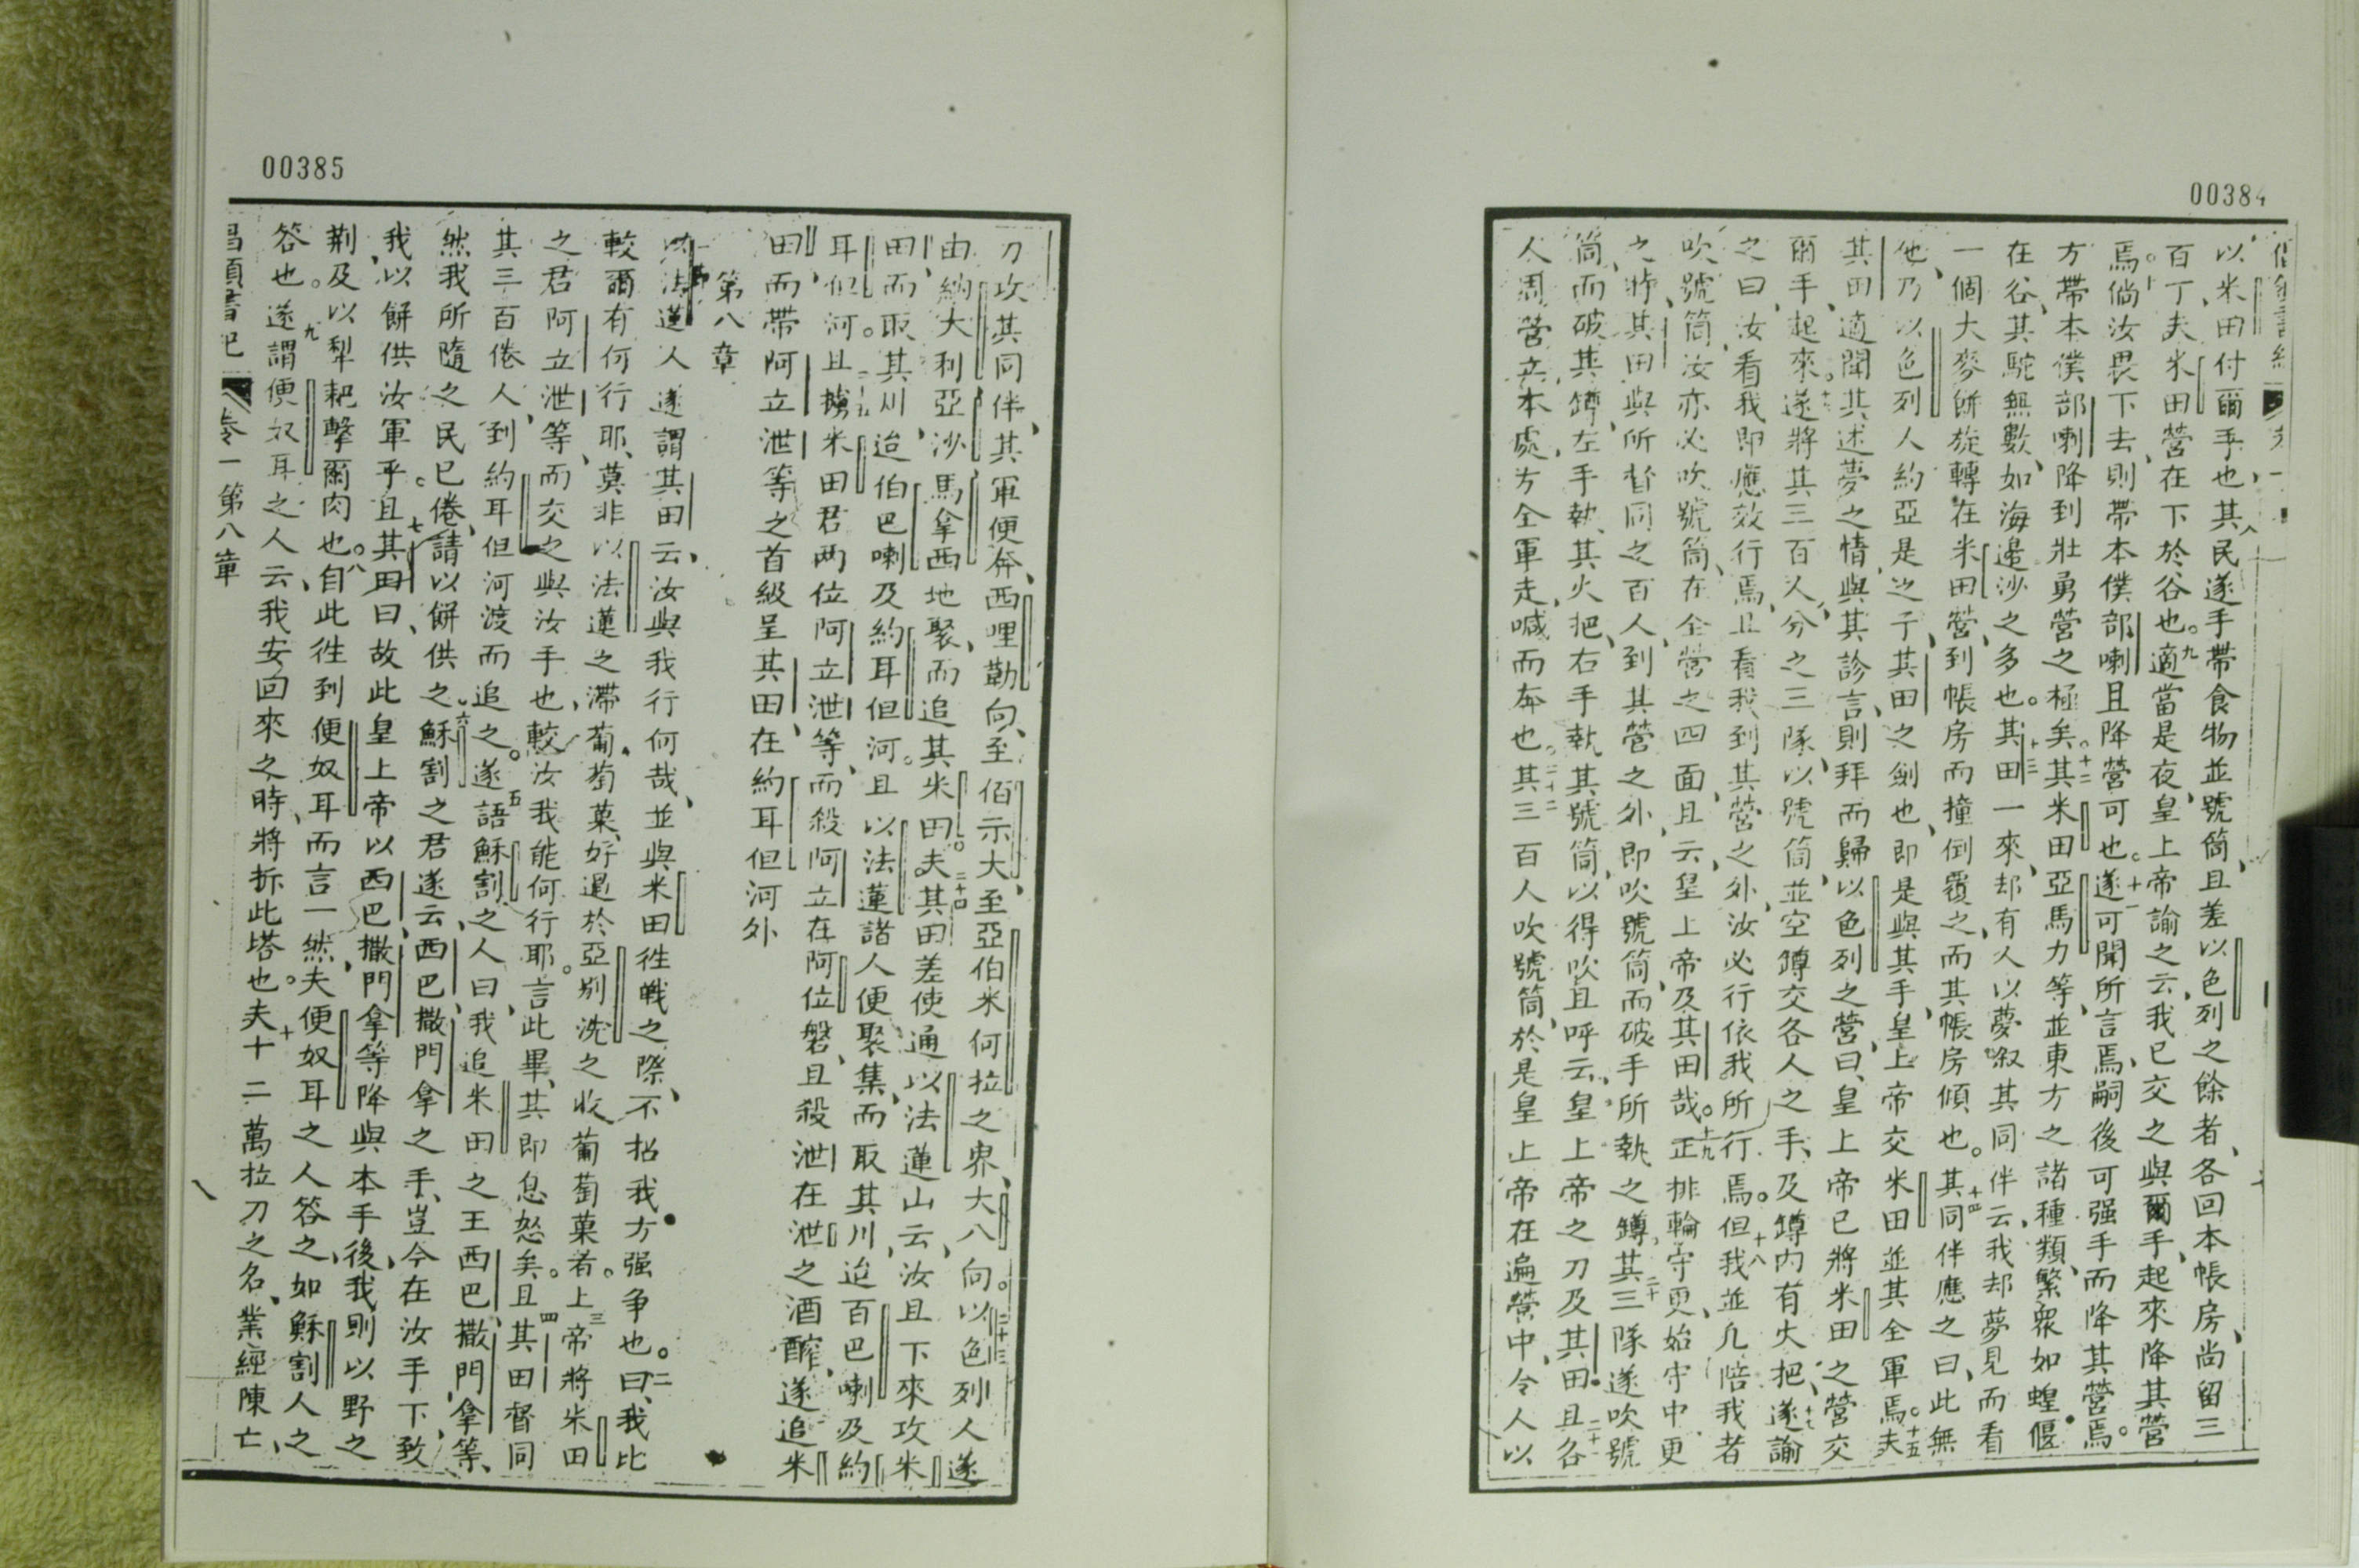 00384
以米田付爾手也其民遂手帶食物並號筒且差以色列之餘者各回本帳房尚留三
百丁夫米田營在下於谷也適當是夜皇上帝諭之云我已交之與爾手起來降其營
焉倘汝畏下去則帶本僕部喇且降營可也遂可聞所言焉嗣後可强手而降其營焉
方帶本僕部喇降到壯勇營之極矣其米田亞馬力等並東方之諸種類繁衆如蝗偃
在谷其駝無數如海邊沙之多也其田一來却有人以夢叙其同伴云我却夢見而看
一個大麥餅旋轉在米田營到帳房而撞倒覆之而其帳房傾也其同伴應之曰此無
他乃以色列人約亞是之子其田之劍也即是與其手皇上帝交米田並其全軍焉夫
其田適聞其述夢之情與其診言則拜而歸以色列之營曰皇上帝已將米田之營交
爾手起來遂將其三百人分之三隊以號筒並空罇交各人之手及罇內有火把遂諭
之曰汝看我即應效行焉且看我到其營之外汝必行依我所行焉但我並凡陪我者
吹號筒汝亦必吹號筒在全營之四面且云皇上帝及其田哉正排輪守更始守中更
之時其田與所督同之百人到其營之外即吹號筒而破手所執之罇其三隊遂吹號
筒而破其罇左手執其火把右手執其號筒以得吹且呼云皇上帝之刀及其田且各
人周營立本處方全軍走喊而奔也其三百人吹號筒於是皇上帝在遍營中令人以
00385
刀攻其同伴其軍便奔西哩勒向至佰示大至亞伯米何拉之界大八向以色列人遂
由納大利亞沙馬拿西地聚而追其米田夫其田差使通以法蓮山云汝且下來攻米
田而取其川迨伯巴喇及約耳但河且以法蓮諸人便聚集而取其川迨百巴喇及約
耳但河且擄米田君两位阿立泄等而殺阿立在阿位磐且殺泄在泄之酒醡遂追米
田而帶阿立泄等之首級呈其田在約耳但河外
第八章
以法蓮人遂謂其田云汝與我行何哉並與米田徃戰之際不招我方强争也曰我比
較爾有何行耶莫非以法蓮之滯葡萄菓好過於亞別洗之收葡萄菓者上帝將米田
之君阿立泄等而交之與汝手也較汝我能何行耶言此畢其即息怒矣且其田督同
其三百倦人到約耳但河渡而追之遂語穌割之人曰我追米田之王西巴撒門拿等
然我所隨之民已倦請以餅供之穌割之君遂云西巴撒門拿之手豈今在汝手下致
我以餅供汝軍乎且其田曰故此皇上帝以西巴撒門拿等降與本手後我則以野之
荆及以犁耙擊爾肉也自此徃到便奴耳而言一然夫便奴耳之人答之如穌割人之
答也遂謂便奴耳之人云我安回來之時將拆此塔也夫十二萬拉刀之名業經陳亡
卷一第八章